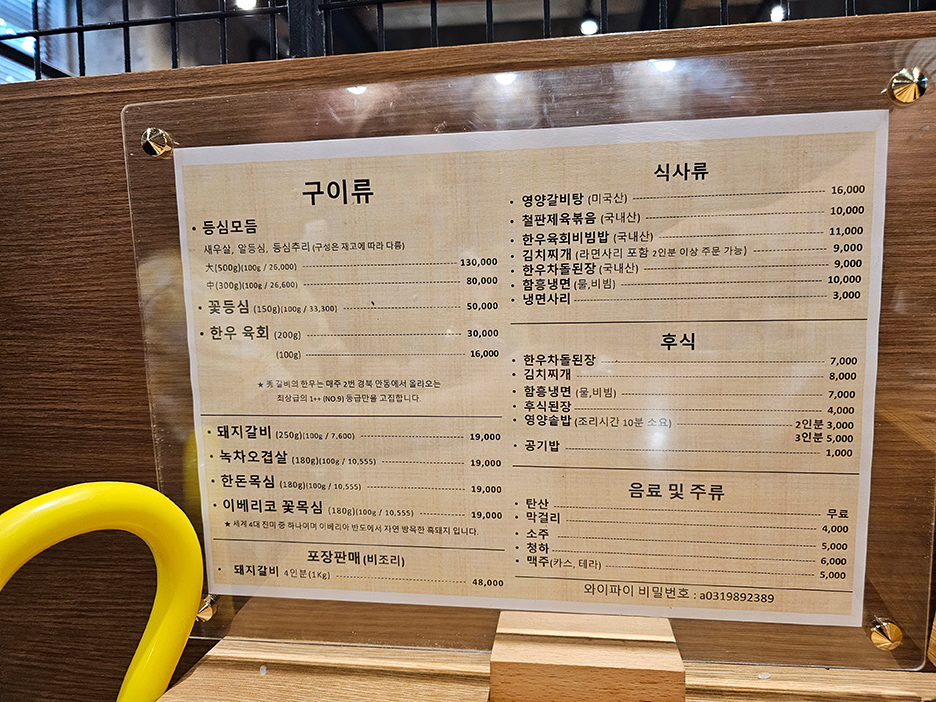 구이류
• 등심모듬
새우살, 알등심, 등심추리 (구성은 재고에 따라 다름)
大(500g)(100g / 26,000) 130,000
中(300g)(100g / 26,600) 80,000
• 꽃등심 (150g)(100g / 33,300) 50,000
• 한우 육회 (200g) 30,000
(100g) 16,000
★ 秀 갈비의 한우는 매주 2번 경북 안동에서 올라오는
최상급의 1++ (NO.9) 등급만을 고집합니다.
• 돼지갈비 (250g)(100g / 7,600) 19,000
• 녹차오겹살 (180g)(100g / 10,555) 19,000
• 한돈목심 (180g)(100g / 10,555) 19,000
• 이베리코 꽃목심 (180g)(100g / 10,555) 19,000
★ 세계 4대 진미 중 하나이며 이베리아 반도에서 자연 방목한 흑돼지 입니다.
포장판매 (비조리)
• 돼지갈비 4인분(1Kg) 48,000
식사류
• 영양갈비탕 (미국산) 16,000
• 철판제육볶음 (국내산) 10,000
• 한우육회비빔밥 (국내산) 11,000
• 김치찌개 (라면사리 포함 2인분 이상 주문 가능) 9,000
• 한우차돌된장 (국내산) 9,000
• 함흥냉면 (물,비빔) 10,000
• 냉면사리 3,000
후식
• 한우차돌된장 7,000
• 김치찌개 8,000
• 함흥냉면 (물,비빔) 7,000
• 후식된장 4,000
• 영양솥밥 (조리시간 10분 소요) 2인분 3,000
3인분 5,000
• 공기밥 1,000
음료 및 주류
• 탄산 무료
• 막걸리 4,000
• 소주 5,000
• 청하 6,000
• 맥주(카스, 테라) 5,000
와이파이 비밀번호 : a0319892389